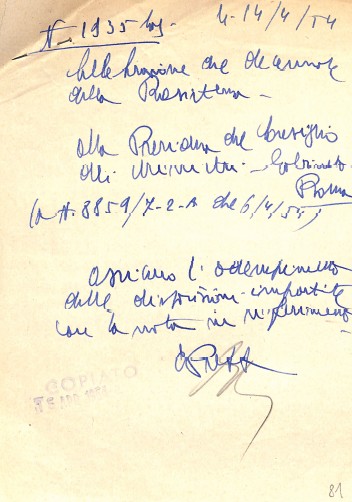 N. 1935 Gab. li 14/4/54
Celebrazione del decennale
della Resistenza -
alla Presidenza del Consiglio
dei Ministri - Gabinetto -
Roma
(a N. 8859/7-2-B del 6/4/54)
Assicuro l'adempimento
delle disposizioni impartite
con la nota in riferimento
COPIATO
15 APR 1954
81